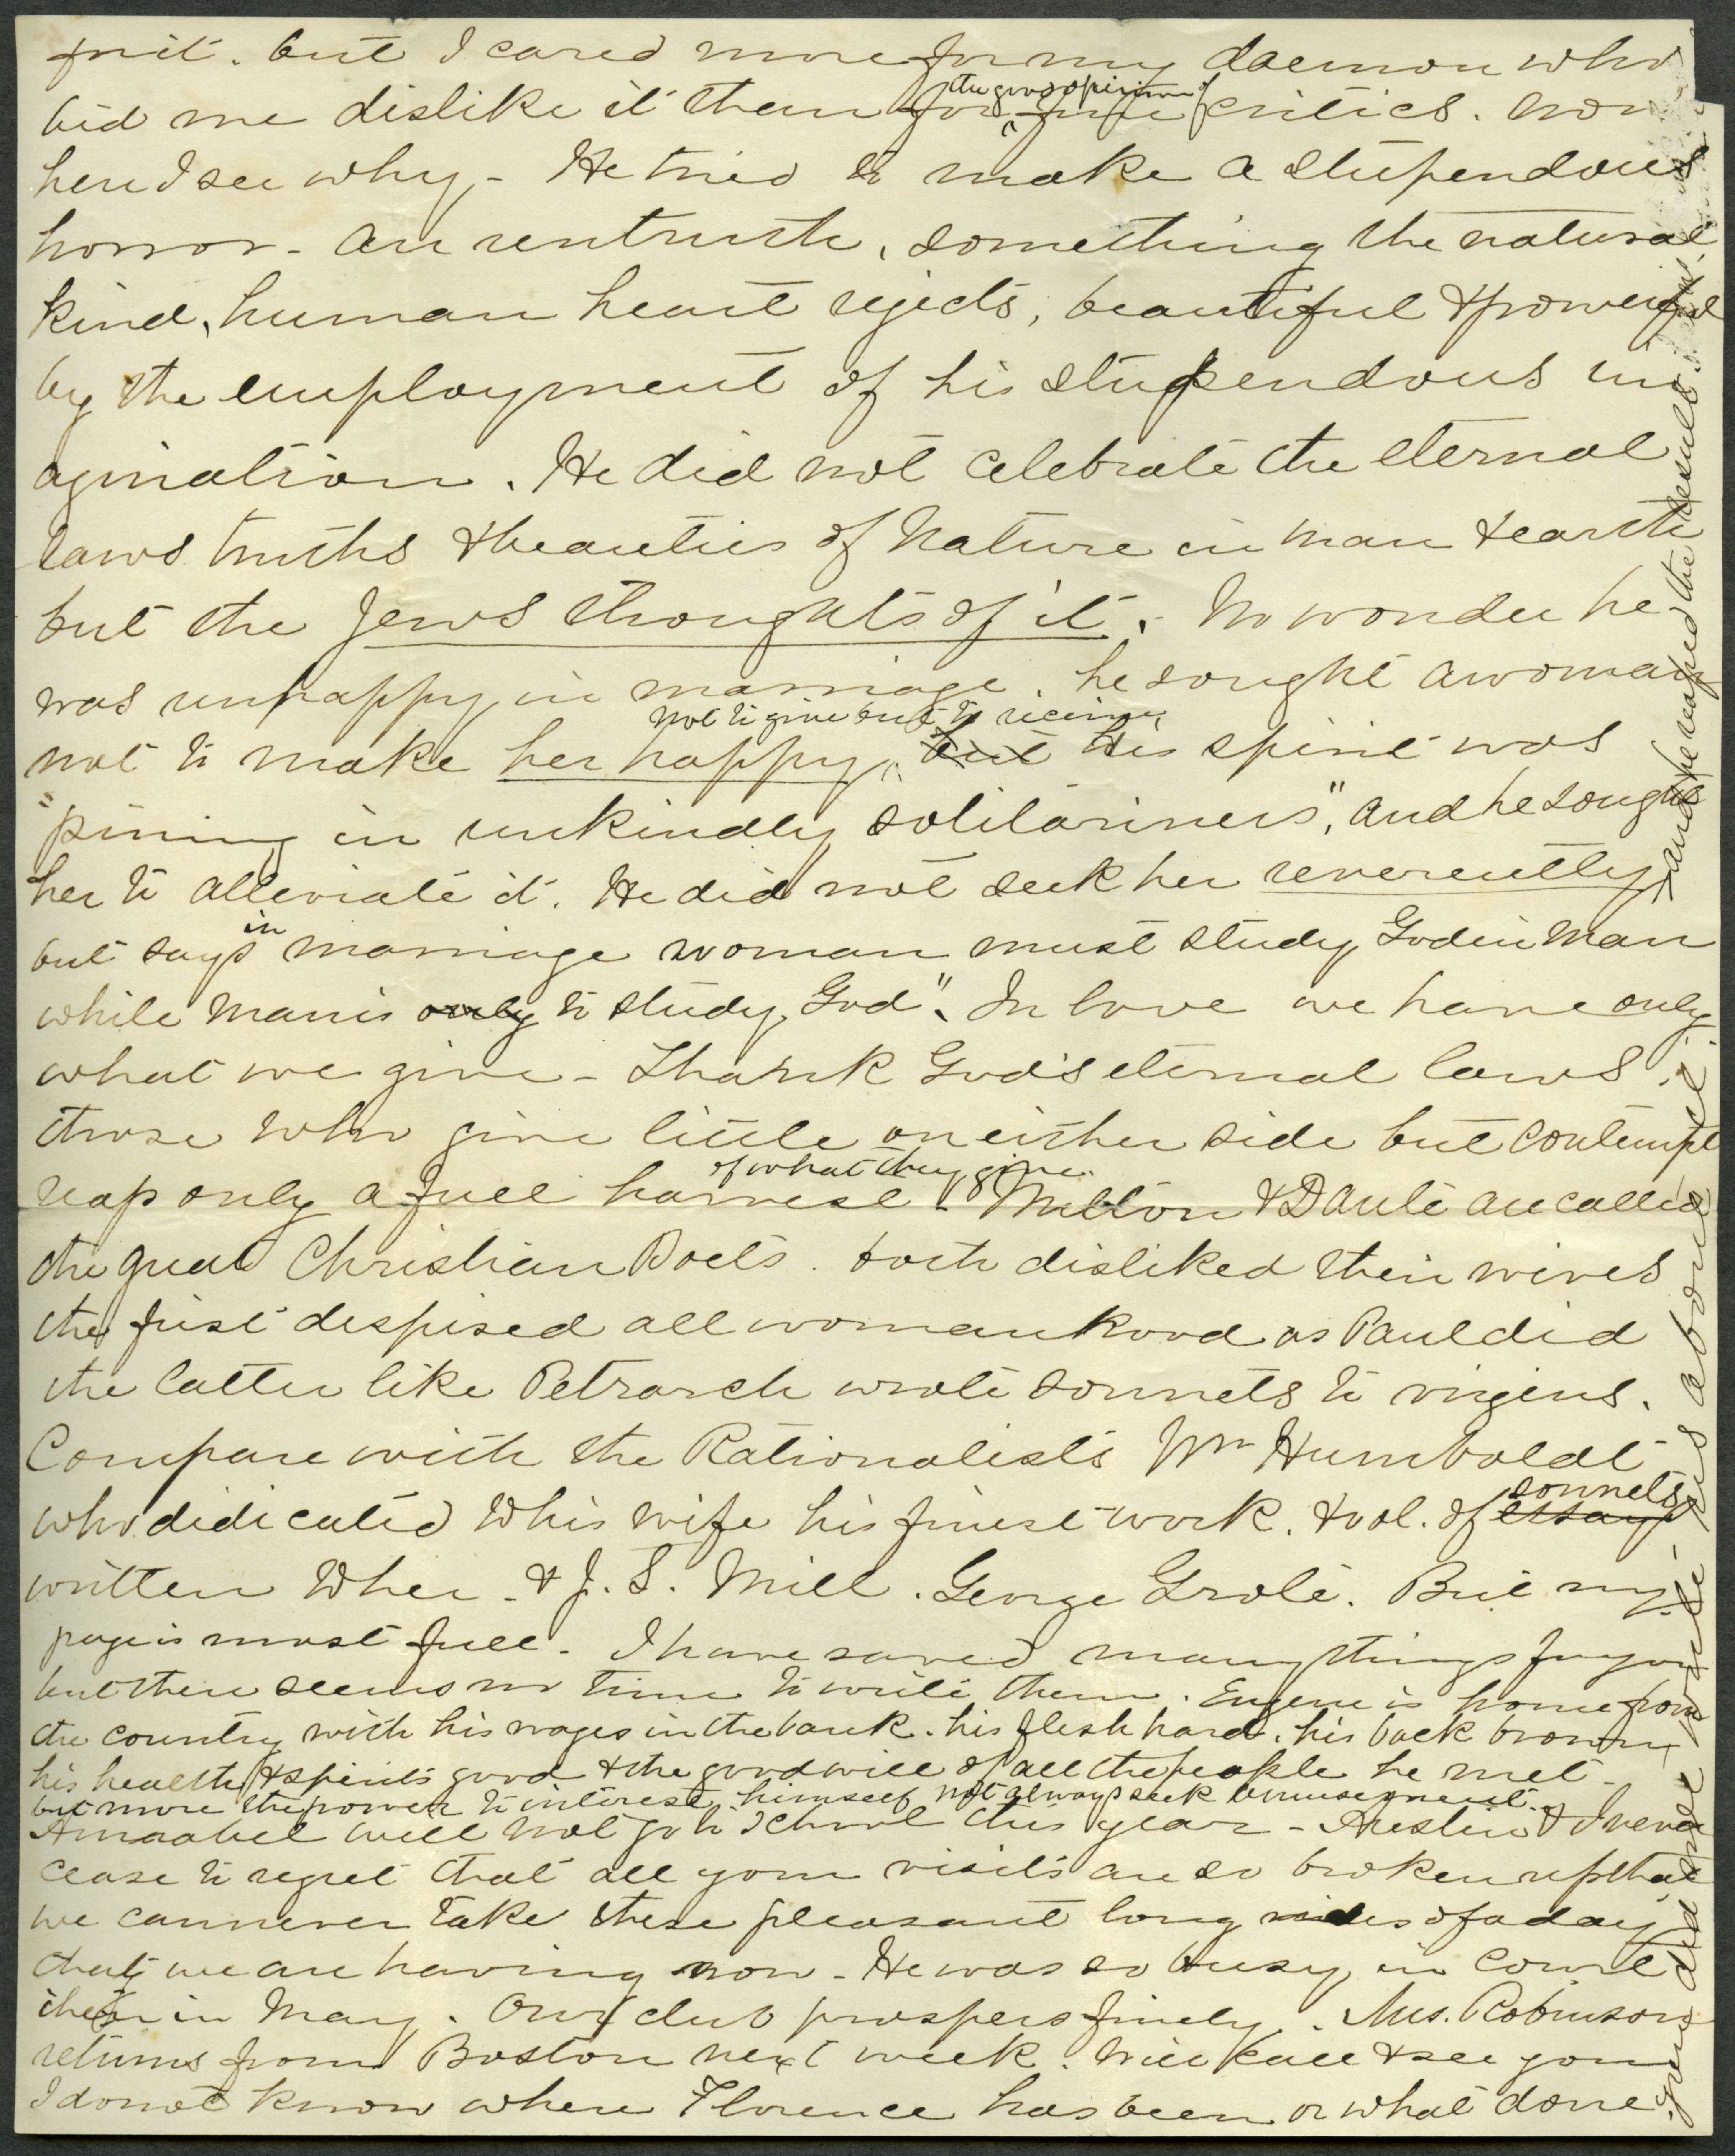 fruit. but I cared more for my daemon who
bid me dislike it than for the good opinion of fine critics. now
here I see why - He tried to make a stupendous
horror - an untruth, something the natural
kind, human heart rejects, beautiful & powerful
by the employment of his stupendous im
agination. He did not celebrate the eternal
laws truths & beauties of Nature in man & earth
but the Jews thoughts of it. No wonder he
was unhappy in marriage. he sought a woman
not to make her happy, not to give but to receive, but His spirit was
"pining in unkindly solitariness", and he sought
her to alleviate it. He did not seek her reverently - and he reaped the result.
but says in marriage woman must study God in Man
while Man is only to study God". In love we have only
what we give - Thank God's eternal laws.
those who give little on either side but contempt
reap only a full harvest of what they give. Milton & Dante are called
the great Christian Poets. both disliked their wives
the first despised all womankood as Paul did
the latter like Petrarch wrote sonnets to virgins.
Compare with the Rationalists Wm Humboldt
who didicated to his wife his finest work. & vol. of essays sonnets
written to her - & J. S. Mill. George Grote. But my
page is most full - I have saved many things for you
but there seems no time to write them. Eugene is home from
the country with his wages in the bank. his flesh hard. his back brown,
his health & spirits good & the good will of all the people he met -
but more the power to interest himself not always seek amusement.
Annabel will not go to School this year - Austin & I never
cease to regret that all your visits are so broken up that
we can never take these pleasant long rides of a day
that we are having now - He was so busy in Court
then in May. Our club prospers finely. Mrs. Robinson
returns from Boston next week. Will call & see you
I do not know where Florence has been or what done.